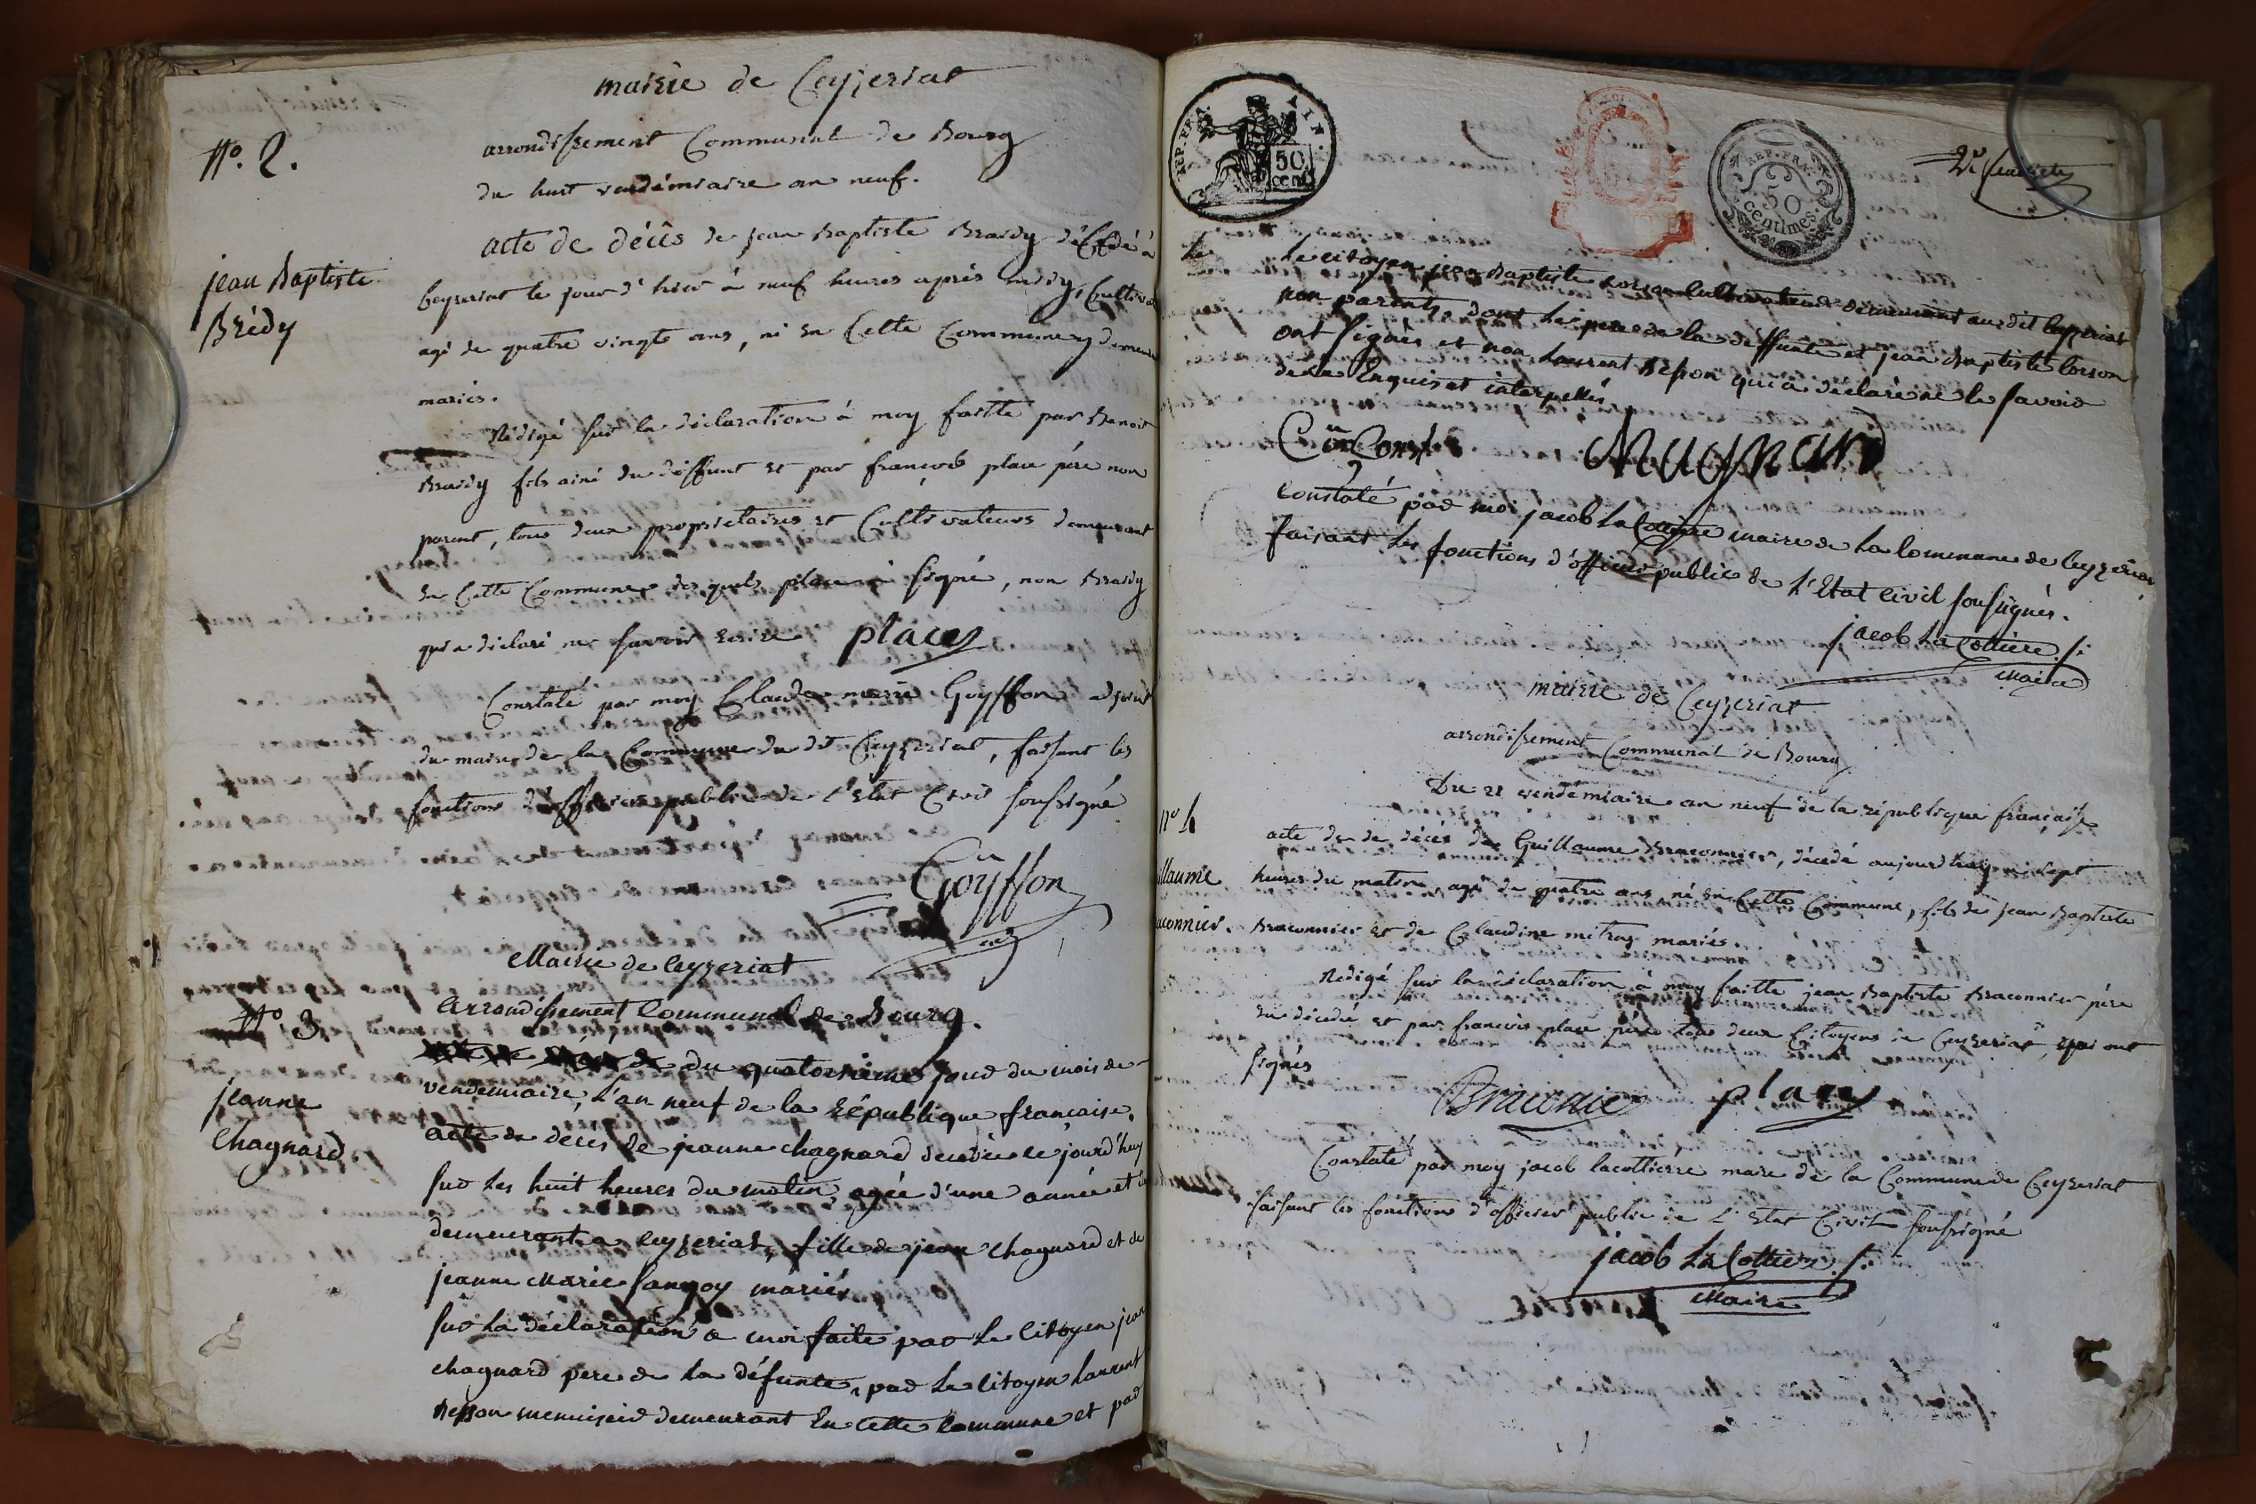 mairie de Ceyzeriat
N°. 2.
arrondissement Communal de Bourg
du huit vendémiaire an neuf.
acte de décès de jean Baptiste Braidy décédé à
jean Baptiste
Brédy
Ceyzeriat le jour d'hier à neuf heures après midy, Cultiva
agé de quatre vingts ans, né en Cette Commune y
mariés.
Rédigé sur la déclaration à moy faitte par Benoit
Braidy fils ainé du déffunt et par françois place père non
parent, tous deux propriétaires et Cultivateurs demeurant
en Cette Commune des quels place a signé, non Braidy
qui a déclaré ne savoir ecrire place
Constaté par moy Claude marie Goyffon adjoint
du maire de la Commune du dit Ceyzeriat, faisant les
fonctions d'officier public de l'Etat Civil soussigné
Goyffon
adj
Mairie de Ceyzeriat
N° 3.
arrondissement Communal de Bourg.
du quatorzième jour du mois de
vendemiaire, l'an neuf de la république francaise.
jeanne
Chagnard
acte de deces de jeanne chagnard decedée ce jourd'huy
sur les huit heures du matin, agée d'une année et
demeurant a Ceyzeriat, fille de jean Chagnard et de
jeanne Marie mariés
sur la déclaration a moi faite par le Citoyen jean
chagnard pere de la défunte, par le Citoyen laurent
menuisier demeurant En cette Commune et par
REP. FRA. AIN.
50
cent.
REP. FRA.
50
centimes.
2e feuillet
Le
Le citoyen jean Baptiste Corson Cultivateur demeurant au dit Ceyzeriat
non parents, dont le pere de la déffunte et jean Baptiste Corson
ont signés et non Laurent qui a déclaré ne le savoir
de ce Enquis et interpellés
Chagnard
Constaté par moi jacob La Cottière maire de la Commune de Ceyzeriat
faisant les fonctions d'officier public de l'Etat Civil soussignés.
jacob La Cottiere
Maire
mairie de Ceyzeriat
arrondissement Communal de Bourg
Du 21 vendémiaire an neuf de la république française
n° 4
acte de de décès de Guillaume Braconnier, décédé aujourd'huy à sept
illaume
heures du matin agé de quatre ans, né en Cette Commune, fils de jean Baptiste
aconnier.
Braconnier et de Claudine mitray mariés.
Rédigé sur la déclaration à moy faitte jean Baptiste Braconnier père
du décédé et par françois place père tous deux Citoyens de Ceyzeriat, qui ont
signés
Braconie place
Constaté par moy jacob lacottierre mare de la Commune de Ceyzeriat
faisant les fonctions d'officier public de l'Etat Civil soussigné
jacob La Cottiere
Maire